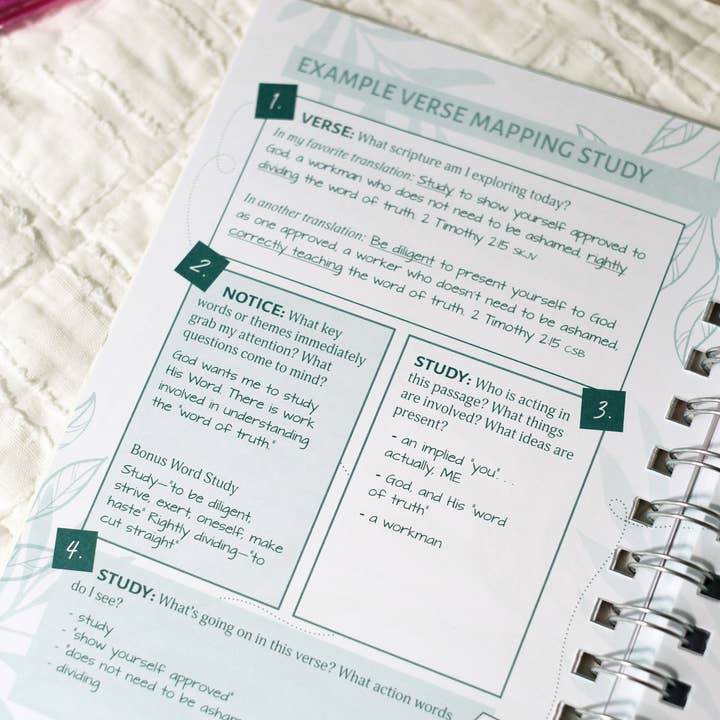 EXAMPLE VERSE MAPPING STUDY
1.
VERSE: What scripture am I exploring today?
In my favorite translation: Study to show yourself approved to
God, a workman who does not need to be ashamed, rightly
dividing the word of truth. 2 Timothy 2:15
In another translation: Be diligent to present yourself to God
as one approved, a worker who doesn't need to be ashamed,
correctly teaching the word of truth. 2 Timothy 2:15 CSB
2.
NOTICE: What key
words or themes immediately
grab my attention? What
questions come to mind?
God wants me to study
His Word. There is work
involved in understanding
the "word of truth."
Bonus Word Study
Study—"to be diligent,
strive, exert, oneself, make
haste" Rightly dividing—"to
cut straight"
3.
STUDY: Who is acting in
this passage? What things
are involved? What ideas are
present?
- an implied "you". . .
actually, ME
- God, and His "word
of truth"
- a workman
4.
STUDY: What's going on in this verse? What action words
do I see?
- study
- "show yourself approved"
- "does not need to be asham
- dividing